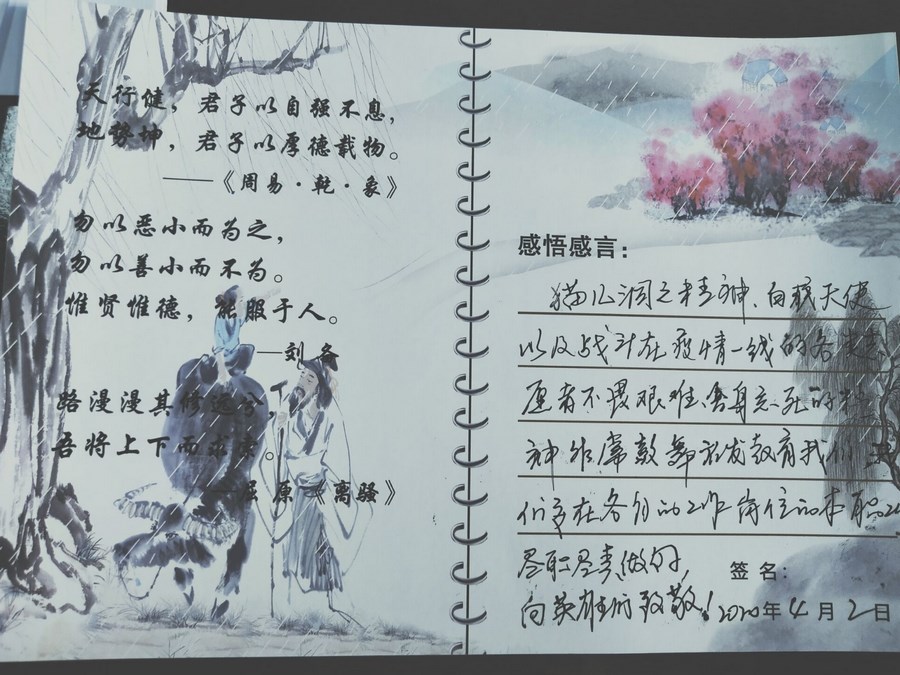 天行健，君子以自强不息，
地势坤，君子以厚德载物。
——《周易·乾·象》
勿以恶小而为之，
勿以善小而不为。
惟贤惟德，能服于人。
——刘备
路漫漫其修远兮，
吾将上下而求索。
——屈原《离骚》
感悟感言：
猫儿洞之精神、白衣天使
以及战斗在疫情一线的各类志
愿者不畏艰难、舍身忘死的精
神 鼓舞 教育我们
们要在各自的工作岗位的本职
尽职尽责做好，
签名：
向英雄们致敬！2020年4月2日